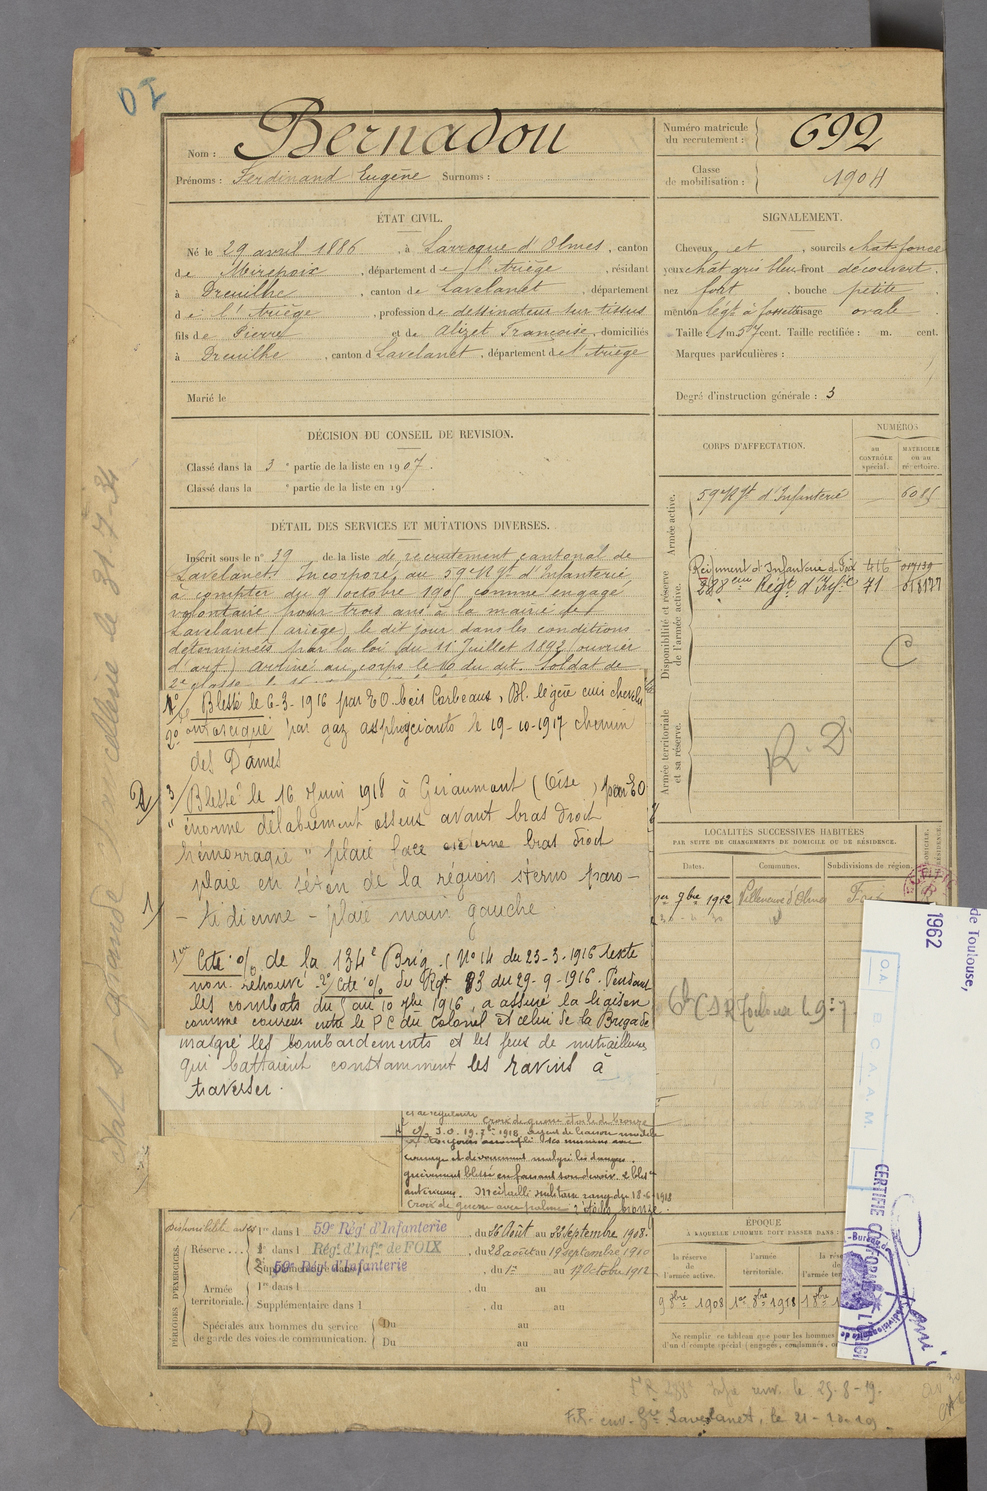 Nom : Bernadou
Prénoms : Ferdinand Eugène Surnoms :
Numéro matricule du recrutement : 692
Classe de mobilisation : 1904
ÉTAT CIVIL.
Né le 29 avril 1886, à Larroque d'Olmes, canton
de Mirepoix, département de l'Ariège, résidant
à Dreuilhe, canton de Lavelanet, département
de l'Ariège, profession de dessinateur sur tissus
fils de Pierre et de Alizet Françoise, domiciliés
à Dreuilhe, canton d Lavelanet, département de l'Ariège
Marié le
SIGNALEMENT.
Cheveux et, sourcils chat. foncé
yeux chât gris bleu front découvert.
nez fort, bouche petite
menton légt à fossette visage ovale
Taille 1 m 57 cent. Taille rectifiée : m. cent.
Marques particulières :
Degré d'instruction générale : 3
DÉCISION DU CONSEIL DE REVISION.
Classé dans la 3e partie de la liste en 1907.
Classé dans la e partie de la liste en 19
DÉTAIL DES SERVICES ET MUTATIONS DIVERSES.
Inscrit sous le n° 39 de la liste de recrutement cantonal de
Lavelanet. Incorporé au 59e Rgt d'Infanterie
à compter du 9 octobre 190 comme engagé
volontaire pour trois ans à la mairie de
Lavelanet (ariège) le dit jour dans les conditions
déterminées par la loi du 11 Juillet 1892 (ouvrier
d'art) Arrivé au corps le 10 du dit. Soldat de
2e classe le
1°/ Blessé le 6-3-1916 par EO bois Corbeaux, Bl. légère cuir chevelu
2° intoxiqué par gaz asphyxiants le 19-10-1917 chemin
des Dames
3/ Blessé le 16 Juin 1918 à Giraumont (Oise) par EO
"énorme délabrement osseux avant bras droit
hémorragie" plaie face externe bras droit
plaie en séton de la région sterno paro-
-tidienne - plaie main gauche.
Cité o/o de la 134e Brig. N° 14 du 23-3-1916 texte
non retrouvé. 2°/ Cité o/o du Rgt 83 du 29-9-1916. Pendant
les combats du au 10 7bre 1916, a assuré la liaison
comme coureur entre le PC du Colonel et celui de la Brigade
malgré les bombardements et les feux de mitrailleuses
qui battaient constamment les ravins à
traverser.
Croix de guerre étoile de bronze
J.O. 19. 1918. Agent de liaison modèle
toujours accompli ses missions avec
courage et dévouement malgré les dangers.
grièvement blessé en faisant son devoir. 2 bles
antérieures. Médaille militaire rang du 18-6-1918
Croix de guerre avec palme
CORPS D'AFFECTATION.
NUMÉROS
au CONTRÔLE spécial.
MATRICULE ou au répertoire.
Armée active.
59e Rgt d'Infanterie
Disponibilité et réserve de l'armée active.
Régiment d'Infanterie d Foix 416
288eme Régt d'Infie 71
C
Armée territoriale et sa réserve.
R. D.
LOCALITÉS SUCCESSIVES HABITÉES
PAR SUITE DE CHANGEMENTS DE DOMICILE OU DE RÉSIDENCE.
Dates. Communes. Subdivisions de région.
1er 7bre 1912 Villeneuve d'Olmes Foix
CSR Toulouse
PÉRIODES D'EXERCICES.
Disponibilité
Réserve . . . 1re dans l 59e Régt d'Infanterie, du 26 Août au 22 Septembre 1908.
2e dans l Régt d'Infie de FOIX, du 28 août au 19 septembre 1910
Supplémentaire dans l 59e Régt d'Infanterie, du 1er au 17 Octobre 1912
Armée territoriale. 1re dans l, du au
Supplémentaire dans l, du au
Spéciales aux hommes du service de garde des voies de communication. Du au
Du au
ÉPOQUE
À LAQUELLE L'HOMME DOIT PASSER DANS :
la réserve de l'armée active.
l'armée territoriale.
9 8bre 1908 1er 8bre 1918
Ne remplir ce tableau que pour les hommes
d'un décompte spécial (engagés, condamnés,
de Toulouse,
1962
O.A.
B C A A M.
CERTIFIE CONFORME A L'ORIGI
le 25-8-19.
F.R. env. Lavelanet, le 21-10-19.